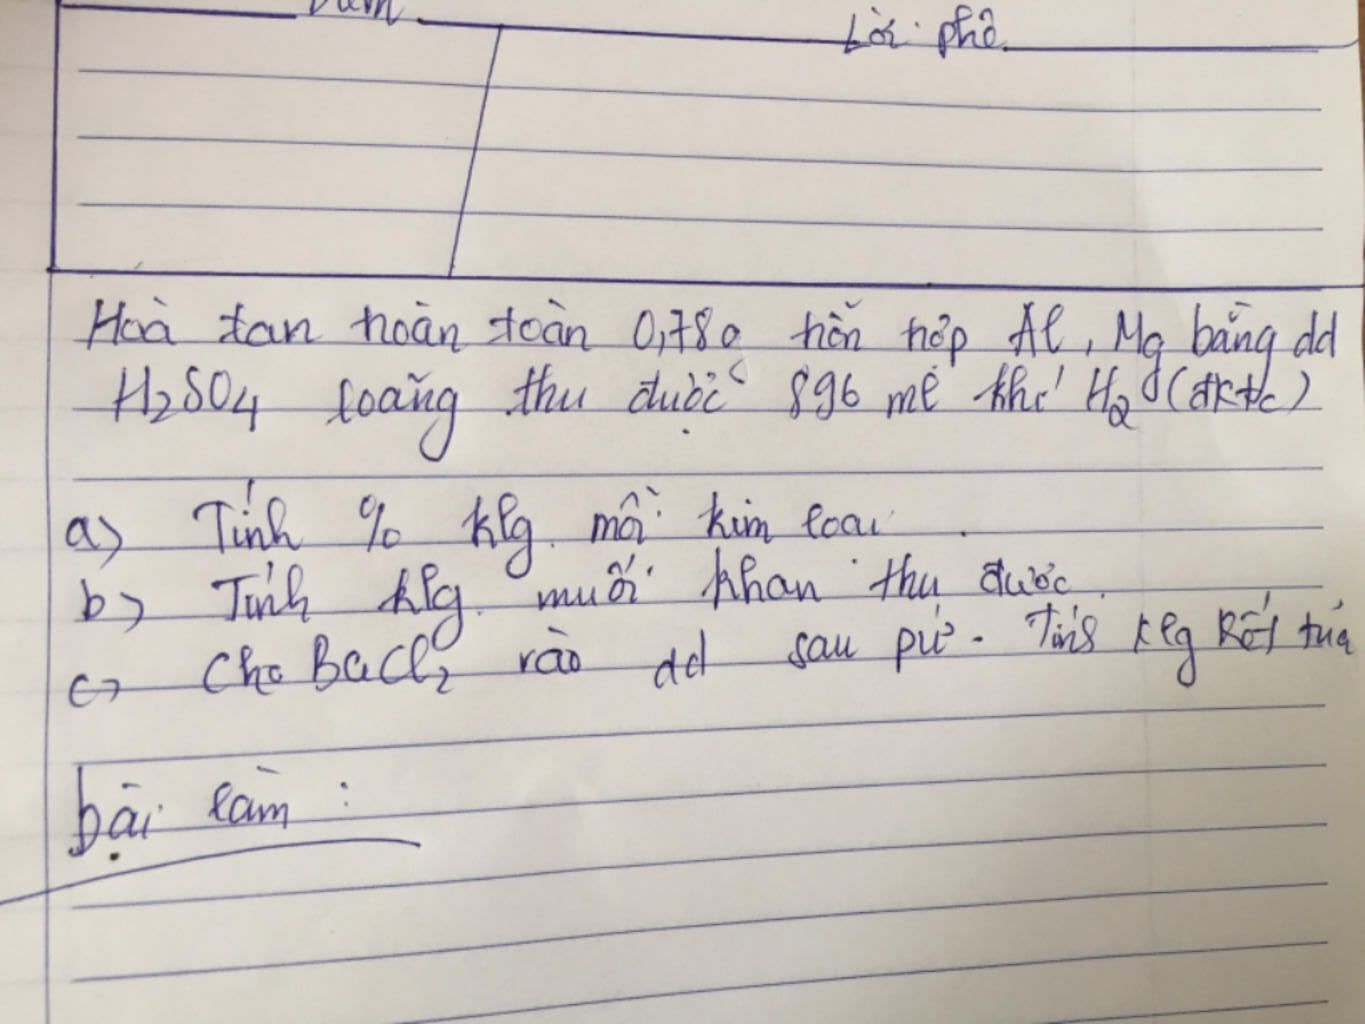 Lời phê
Hoà tan hoàn toàn 0,78g hỗn hợp Al, Mg bằng dd
H2SO4 loãng thu được 896 ml khí H2 (đktc)
a) Tính % klg mỗi kim loại.
b) Tính klg muối khan thu được.
c) Cho BaCl2 vào dd sau pứ. Tính klg kết tủa
bài làm: